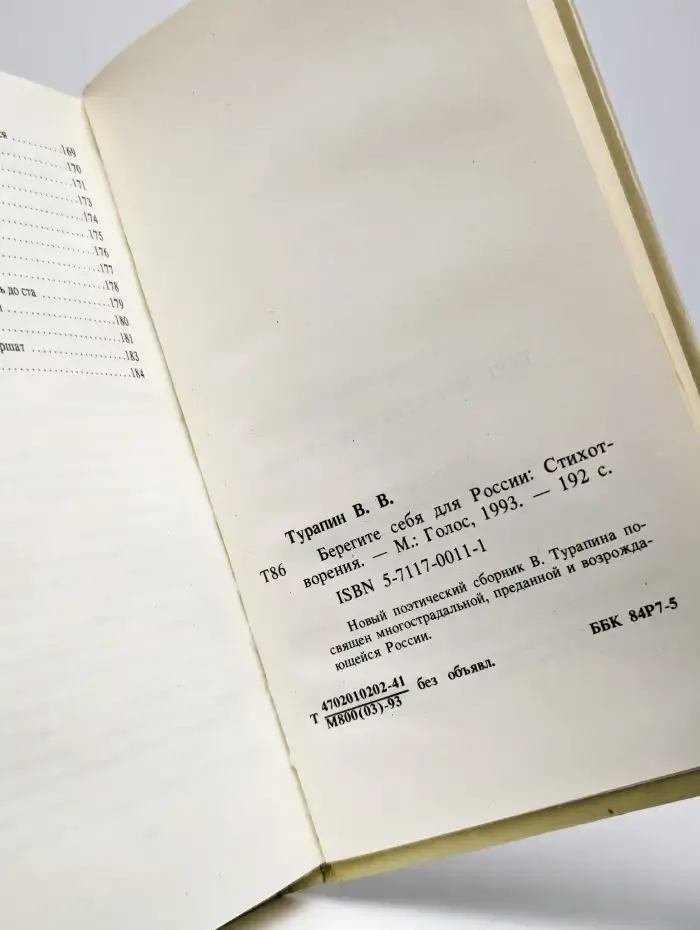 ся ..........169
170
171
173
174
175
176
177
178
ь до ста ..........179
180
181
ршат ..........183
184
Турапин В. В.
Т86
Берегите себя для России: Стихот-
ворения. — М.: Голос, 1993. — 192 с.
ISBN 5-7117-0011-1
Новый поэтический сборник В. Турапина по-
священ многострадальной, преданной и возрожда-
ющейся России.
ББК 84Р7-5
Т 4702010202-41
М800(03)-93 без объявл.